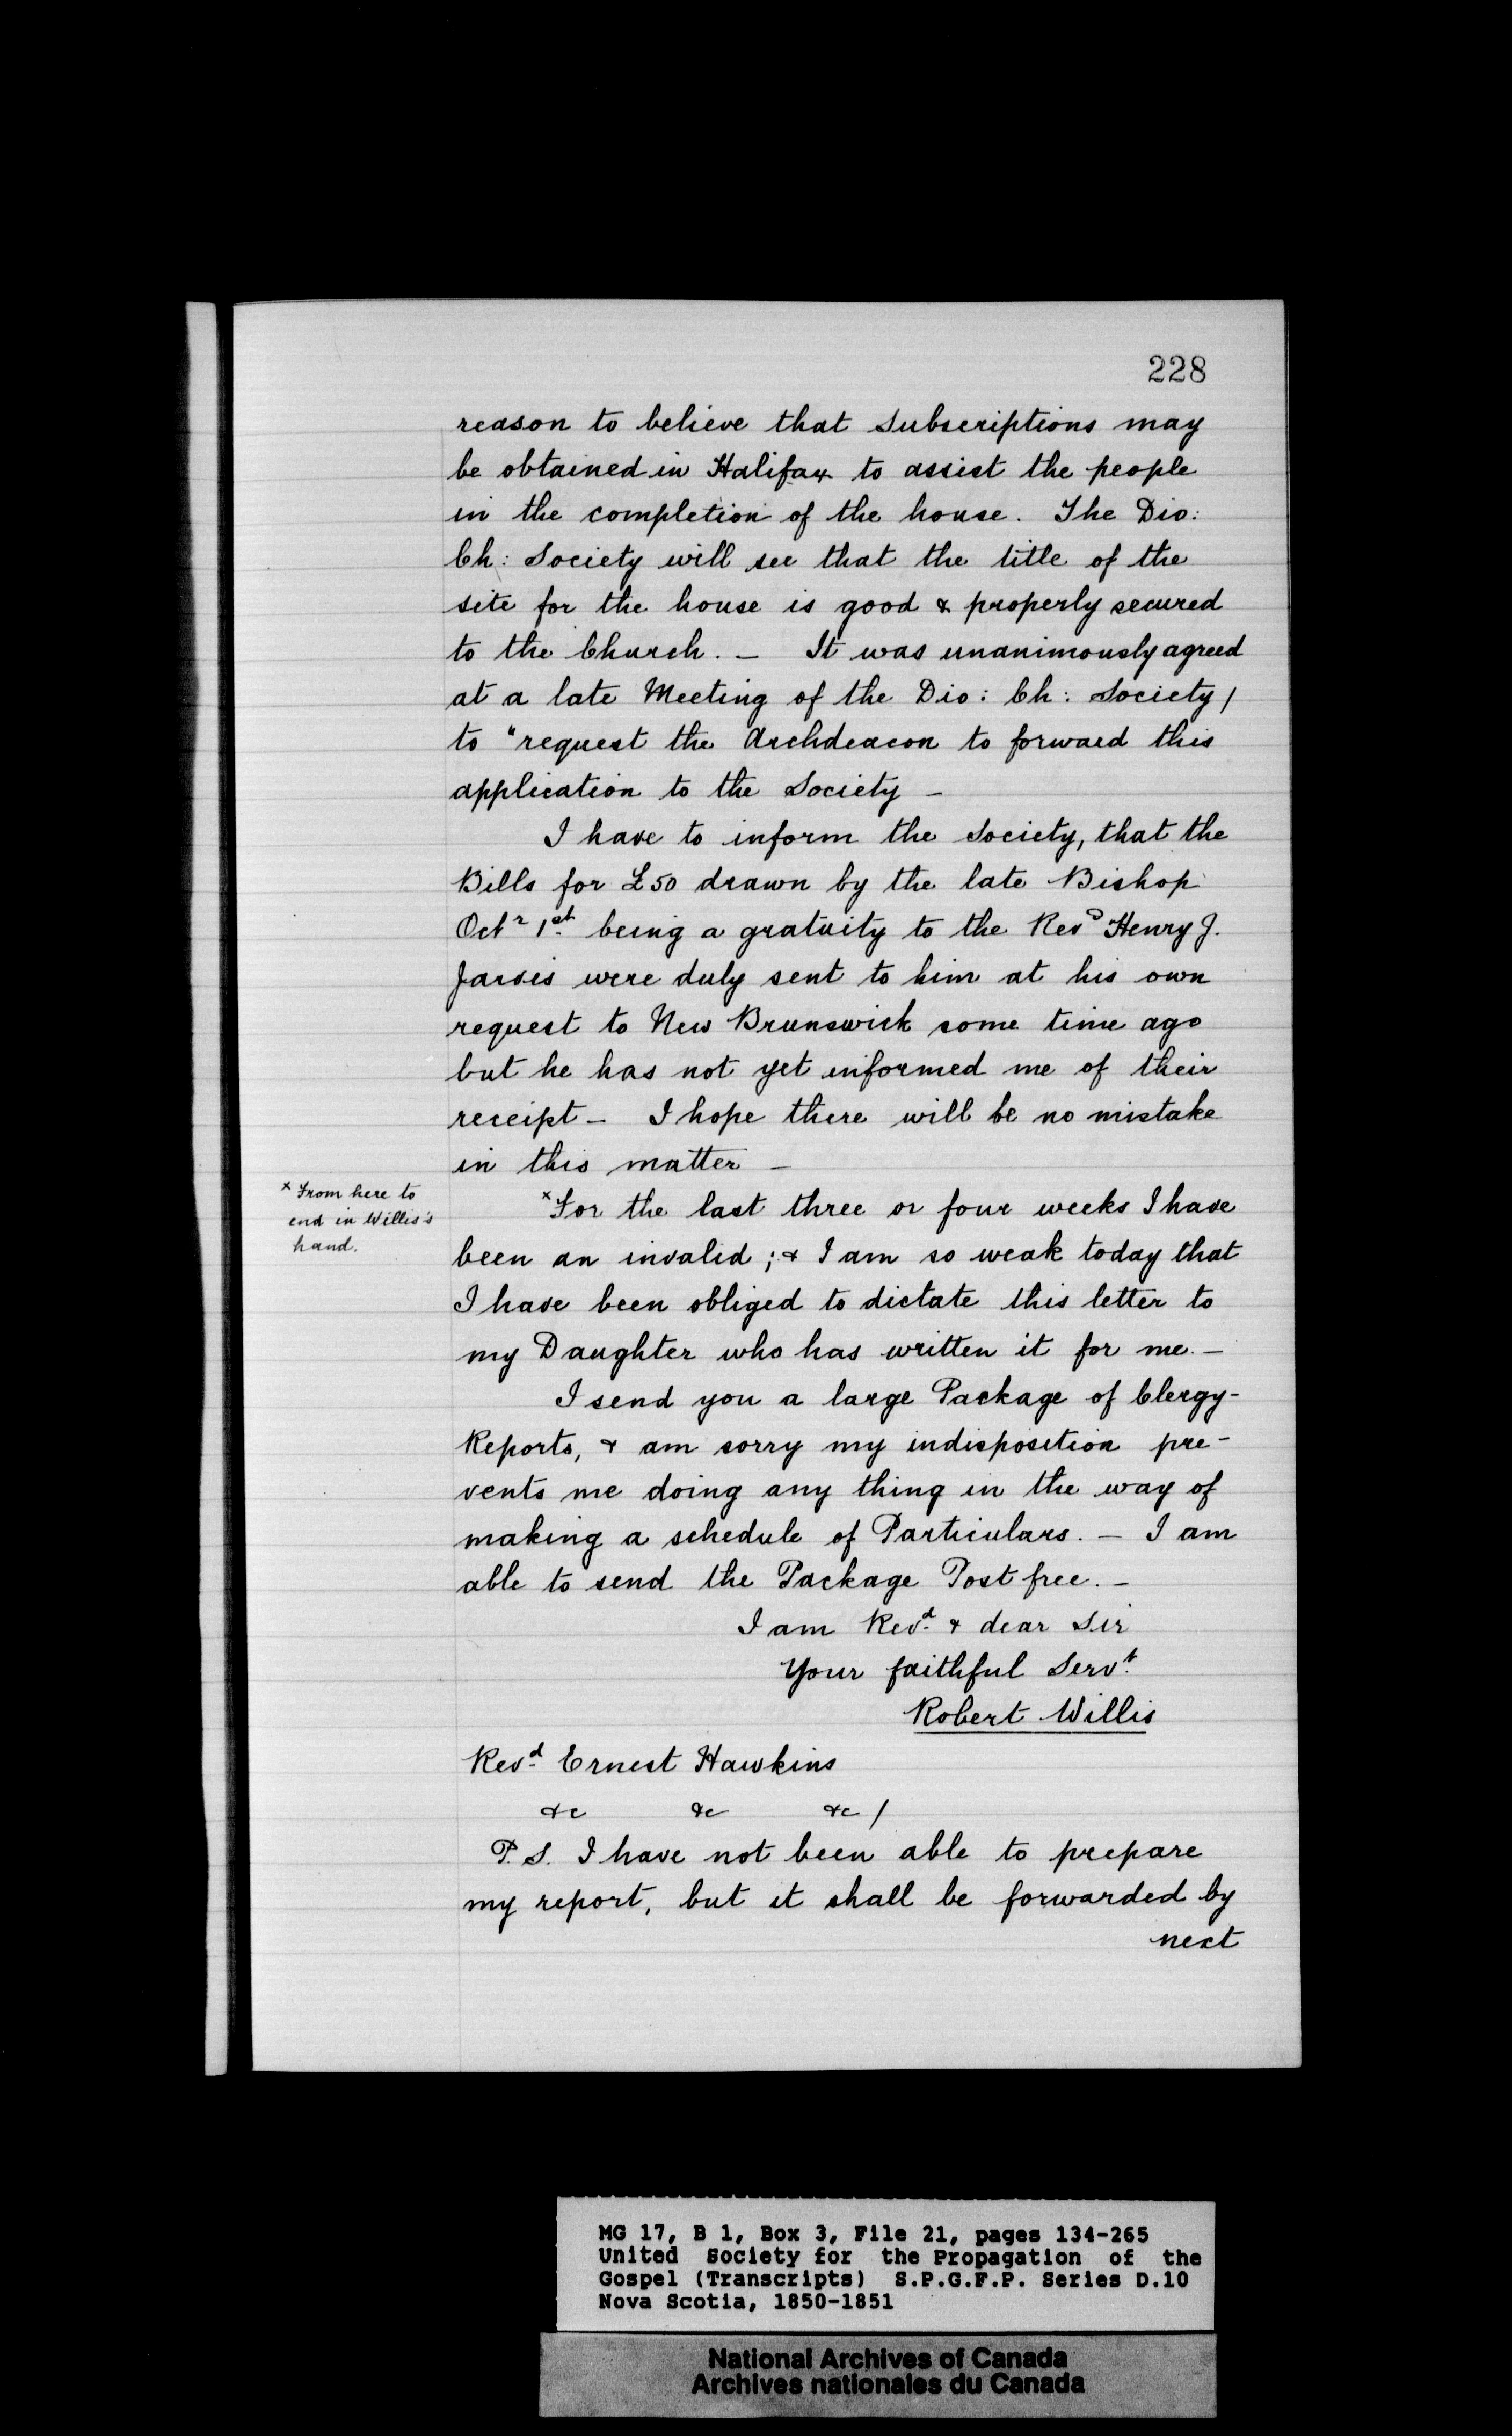 228
reason to believe that subscriptions may
be obtained in Halifax to assist the people
in the completion of the house. The Dio:
Ch: Society will see that the title of the
site for the house is good & properly secured
to the Church. — It was unanimously agreed
at a late Meeting of the Dio: Ch: Society /
to "request the Archdeacon to forward this
application to the Society —
I have to inform the Society, that the
Bills for £50 drawn by the late Bishop
Octr 1st being a gratuity to the Revd Henry J.
Jarvis were duly sent to him at his own
request to New Brunswick some time ago
but he has not yet informed me of their
receipt — I hope there will be no mistake
in this matter —
x From here to
end in Willis's
hand.
xFor the last three or four weeks I have
been an invalid; & I am so weak today that
I have been obliged to dictate this letter to
my Daughter who has written it for me. —
I send you a large Package of Clergy-
Reports, & am sorry my indisposition pre-
vents me doing any thing in the way of
making a schedule of Particulars. — I am
able to send the Package Post free. —
I am Revd. & dear Sir
Your faithful Servt.
Robert Willis
Revd. Ernest Hawkins
&c &c &c /
P.S. I have not been able to prepare
my report, but it shall be forwarded by
next
MG 17, B 1, Box 3, File 21, pages 134-265
United Society for the Propagation of the
Gospel (Transcripts) S.P.G.F.P. Series D.10
Nova Scotia, 1850-1851
National Archives of Canada
Archives nationales du Canada